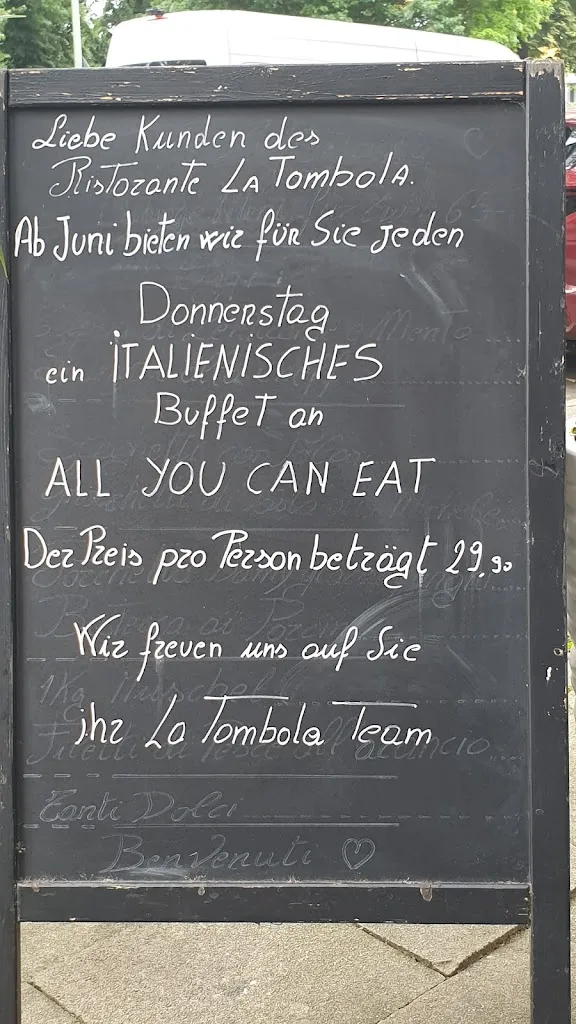 Liebe Kunden des
Ristorante La Tombola.
Ab Juni bieten wir für Sie jeden
Donnerstag
ein ITALIENISCHES
Buffet an
ALL YOU CAN EAT
Der Preis pro Person beträgt 29,90
Wir freuen uns auf Sie
ihr La Tombola Team
Tanti Dolci
Benvenuti